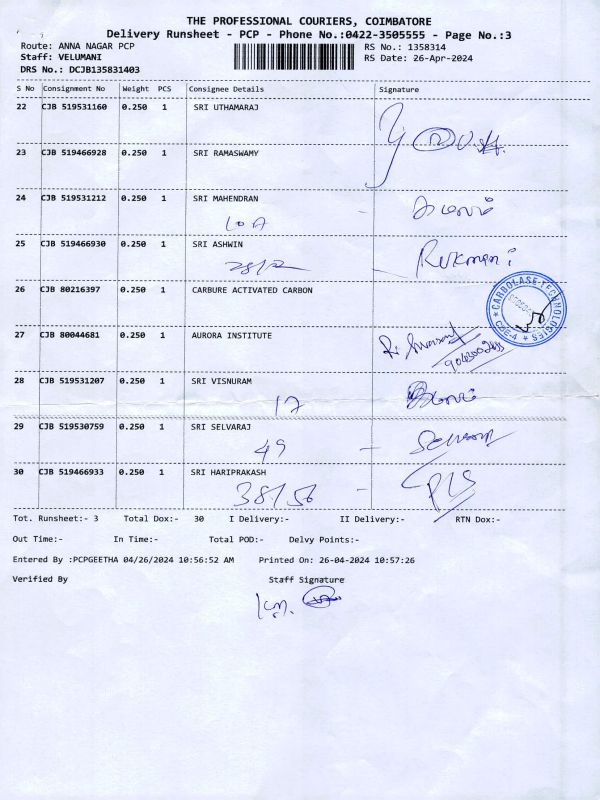 THE PROFESSIONAL COURIERS, COIMBATORE
Delivery Runsheet - PCP - Phone No.:0422-3505555 - Page No.:3
Route: ANNA NAGAR PCP RS No.: 1358314
Staff: VELUMANI RS Date: 26-Apr-2024
DRS No.: DCJB135831403
S No Consignment No Weight PCS Consignee Details Signature
22 CJB 519531160 0.250 1 SRI UTHAMARAJ
23 CJB 519466928 0.250 1 SRI RAMASWAMY
24 CJB 519531212 0.250 1 SRI MAHENDRAN
25 CJB 519466930 0.250 1 SRI ASHWIN
Rukmani
26 CJB 80216397 0.250 1 CARBURE ACTIVATED CARBON
27 CJB 80044681 0.250 1 AURORA INSTITUTE
28 CJB 519531207 0.250 1 SRI VISNURAM
17
29 CJB 519530759 0.250 1 SRI SELVARAJ
49 -
30 CJB 519466933 0.250 1 SRI HARIPRAKASH
38/56 -
Tot. Runsheet:- 3 Total Dox:- 30 I Delivery:- II Delivery:- RTN Dox:-
Out Time:- In Time:- Total POD:- Delvy Points:-
Entered By :PCPGEETHA 04/26/2024 10:56:52 AM Printed On: 26-04-2024 10:57:26
Verified By Staff Signature